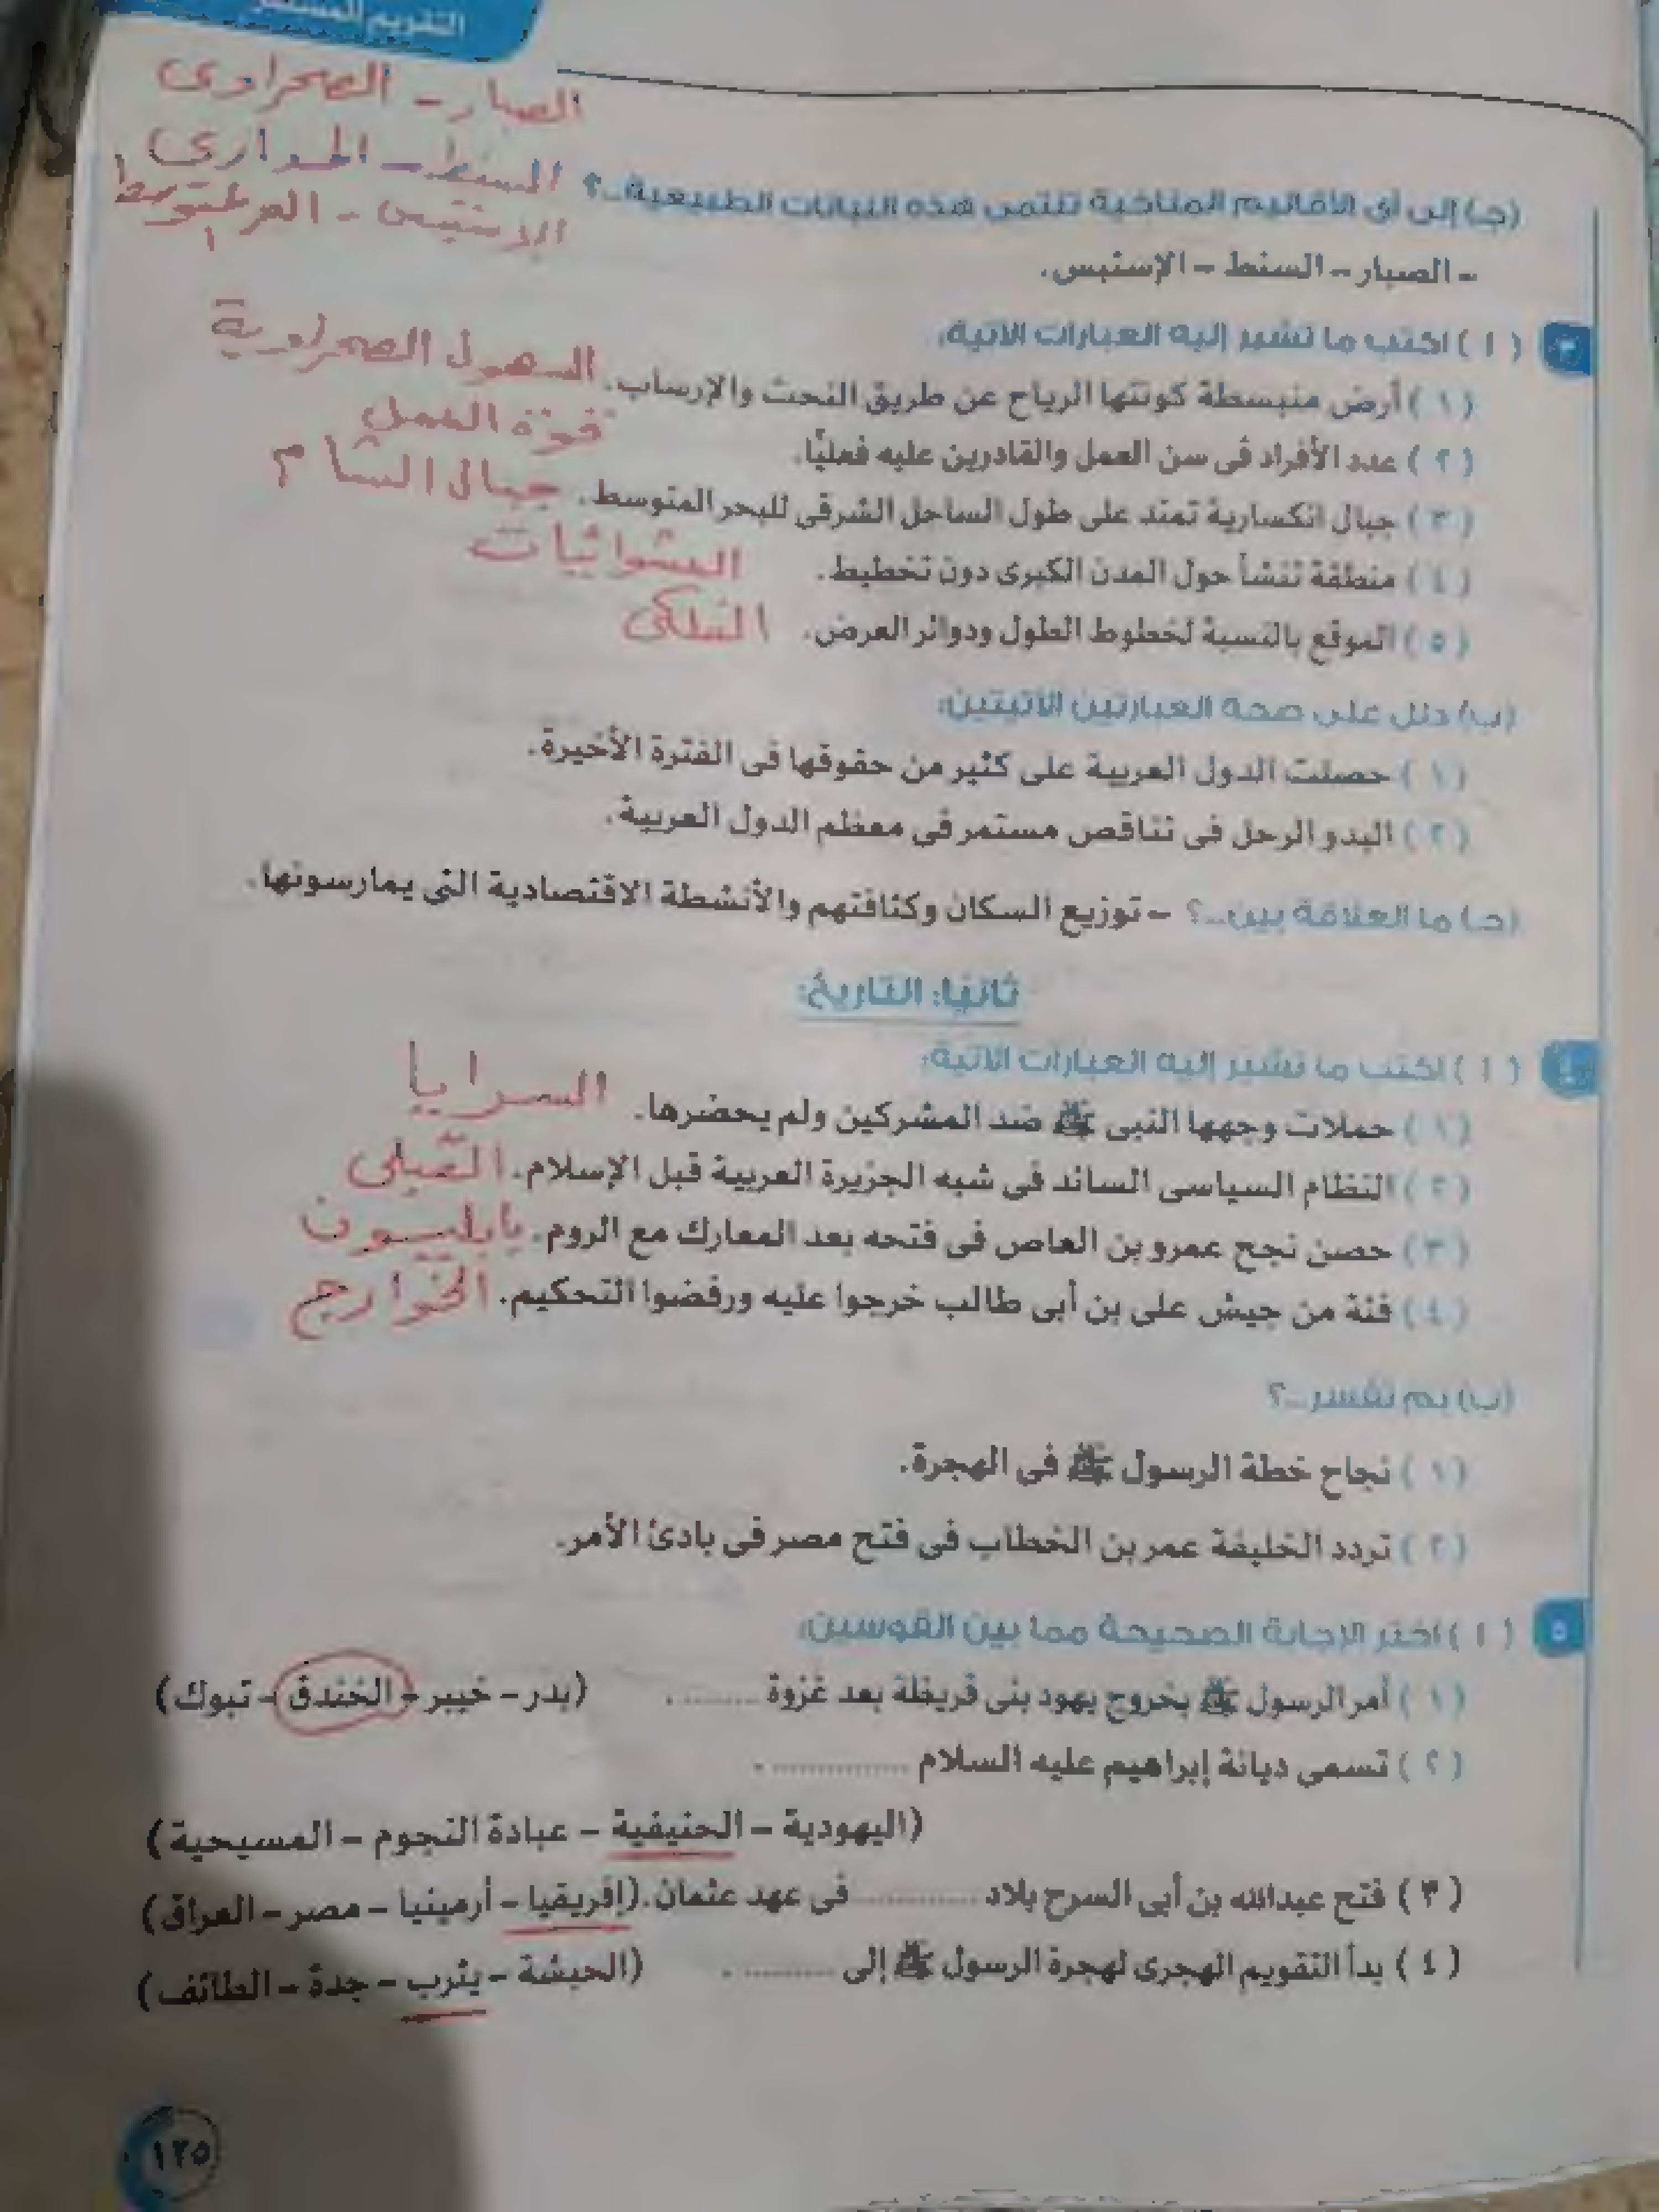 التقويم المستمر
الصبار - الصحراوى
السنط - المدارى
الاستبس - المعتدل
(جـ) إلى أى الأقاليم المناخية تنتمى هذه النباتات الطبيعية..؟
- الصبار - السنط - الإستبس.
٣ ( أ ) اكتب ما تشير إليه العبارات الآتية:
( ١ ) أرض منبسطة كونتها الرياح عن طريق النحت والإرساب. السهول الصحراوية
( ٢ ) عدد الأفراد فى سن العمل والقادرين عليه فعليًا. قوة العمل
( ٣ ) جبال انكسارية تمتد على طول الساحل الشرقى للبحر المتوسط. جبال الشام
( ٤ ) منطقة تنشأ حول المدن الكبرى دون تخطيط. العشوائيات
( ٥ ) الموقع بالنسبة لخطوط الطول ودوائر العرض. الفلكى
(ب) دلل على صحة العبارتين الآتيتين:
( ١ ) حصلت الدول العربية على كثير من حقوقها فى الفترة الأخيرة.
( ٢ ) البدو الرحل فى تناقص مستمر فى معظم الدول العربية.
(جـ) ما العلاقة بين..؟ - توزيع السكان وكثافتهم والأنشطة الاقتصادية التى يمارسونها.
ثانيًا: التاريخ:
٤ ( أ ) اكتب ما تشير إليه العبارات الآتية:
( ١ ) حملات وجهها النبى ﷺ ضد المشركين ولم يحضرها. السرايا
( ٢ ) النظام السياسى السائد فى شبه الجزيرة العربية قبل الإسلام. القبلى
( ٣ ) حصن نجح عمرو بن العاص فى فتحه بعد المعارك مع الروم. بابليون
( ٤ ) فئة من جيش على بن أبى طالب خرجوا عليه ورفضوا التحكيم. الخوارج
(ب) بم تفسر..؟
( ١ ) نجاح خطة الرسول ﷺ فى الهجرة.
( ٢ ) تردد الخليفة عمر بن الخطاب فى فتح مصر فى بادئ الأمر.
٥ ( أ ) اختر الإجابة الصحيحة مما بين القوسين:
( ١ ) أمر الرسول ﷺ بخروج يهود بنى قريظة بعد غزوة ......... . (بدر - خيبر - الخندق - تبوك)
( ٢ ) تسمى ديانة إبراهيم عليه السلام ............... .
(اليهودية - الحنيفية - عبادة النجوم - المسيحية)
( ٣ ) فتح عبدالله بن أبى السرح بلاد ............. فى عهد عثمان. (إفريقيا - أرمينيا - مصر - العراق)
( ٤ ) بدأ التقويم الهجرى لهجرة الرسول ﷺ إلى ......... . (الحبشة - يثرب - جدة - الطائف)
١٢٥